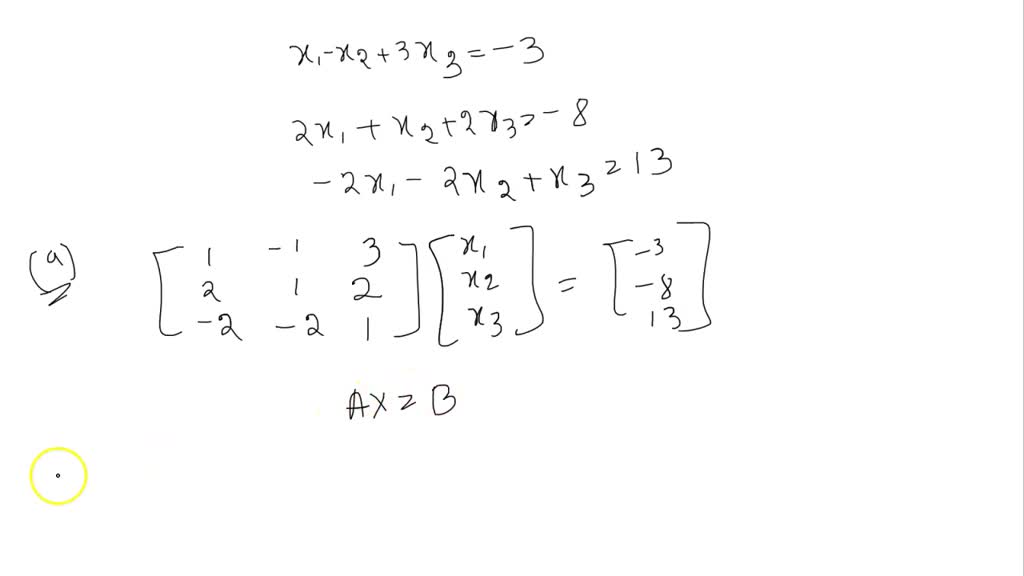 x₁-x₂+3x₃=-3
2x₁+x₂+2x₃=-8
-2x₁-2x₂+x₃=13
(a) [1 -1 3] [x₁] = [-3]
[2 1 2] [x₂] [-8]
[-2 -2 1] [x₃] [13]
AX=B